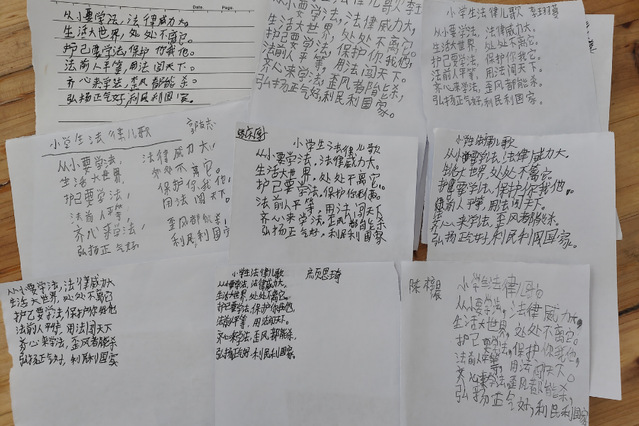 Date.
Page.
从小要学法，法律威力大。
生活大世界，处处不离它。
护己要学法，保护你我他。
法前人平等，用法闯天下。
齐心来学法，歪风都能杀。
弘扬正气好，利民利国家。
从小要学法，法律威力大。
生活大世界，处处不离它。
护己要学法，保护你我他，
法前人平等，用法闯天下。
齐心来学法，歪风都能杀，
弘扬正气好，利民利国家。
小学生法律儿歌
从小要学法，法律威力大。
生活大世界，处处不离它。
护己要学法，保护你我他。
法前人平等，用法闯天下。
齐心来学法，歪风都能杀。
弘扬正气好，利民利国家。
小学生法律儿歌
从小要学法， 法律威力大，
生活大世界， 处处不离它。
护己要学法， 保护你我他，
法前人平等， 用法闯天下。
齐心来学法， 歪风都能杀，
弘扬正气好 利民利国家
小学生法律儿歌
从小要学法，法律威力大。
生活大世界，处处不离它。
护己要学法，保护你我他。
法前人平等，用法闯天下
齐心来学法，歪风都能杀
弘扬正气好，利民利国家
小学生法律儿歌
从小要学法，法律威力大。
生活大世界，处处不离它。
护己要学法，保护你我他。
法前人平等，用法闯天下。
齐心来学法，歪风都能杀。
弘扬正气好，利民利国家。
从小要学法，法律威力大
生活大世界，处处不离它
护己要学法，保护你我他
法前人平等，用法闯天下
齐心来学法，歪风都能杀
弘扬正气好，利民利国家
小学生法律儿歌
从小要学法，法律威力大。
生活大世界，处处不离它。
护己要学法，保护你我他
法前人平等，用法闯天下。
齐心来学法，歪风都能杀，
弘扬正气好，利民利国家。
小学生法律儿歌
从小要学法，法律威力大。
生活大世界，处处不离它。
护己要学法，保护你我他。
法前人平等，用法闯天下。
齐心来学法，歪风都能杀，
弘扬正气好，利民利国家